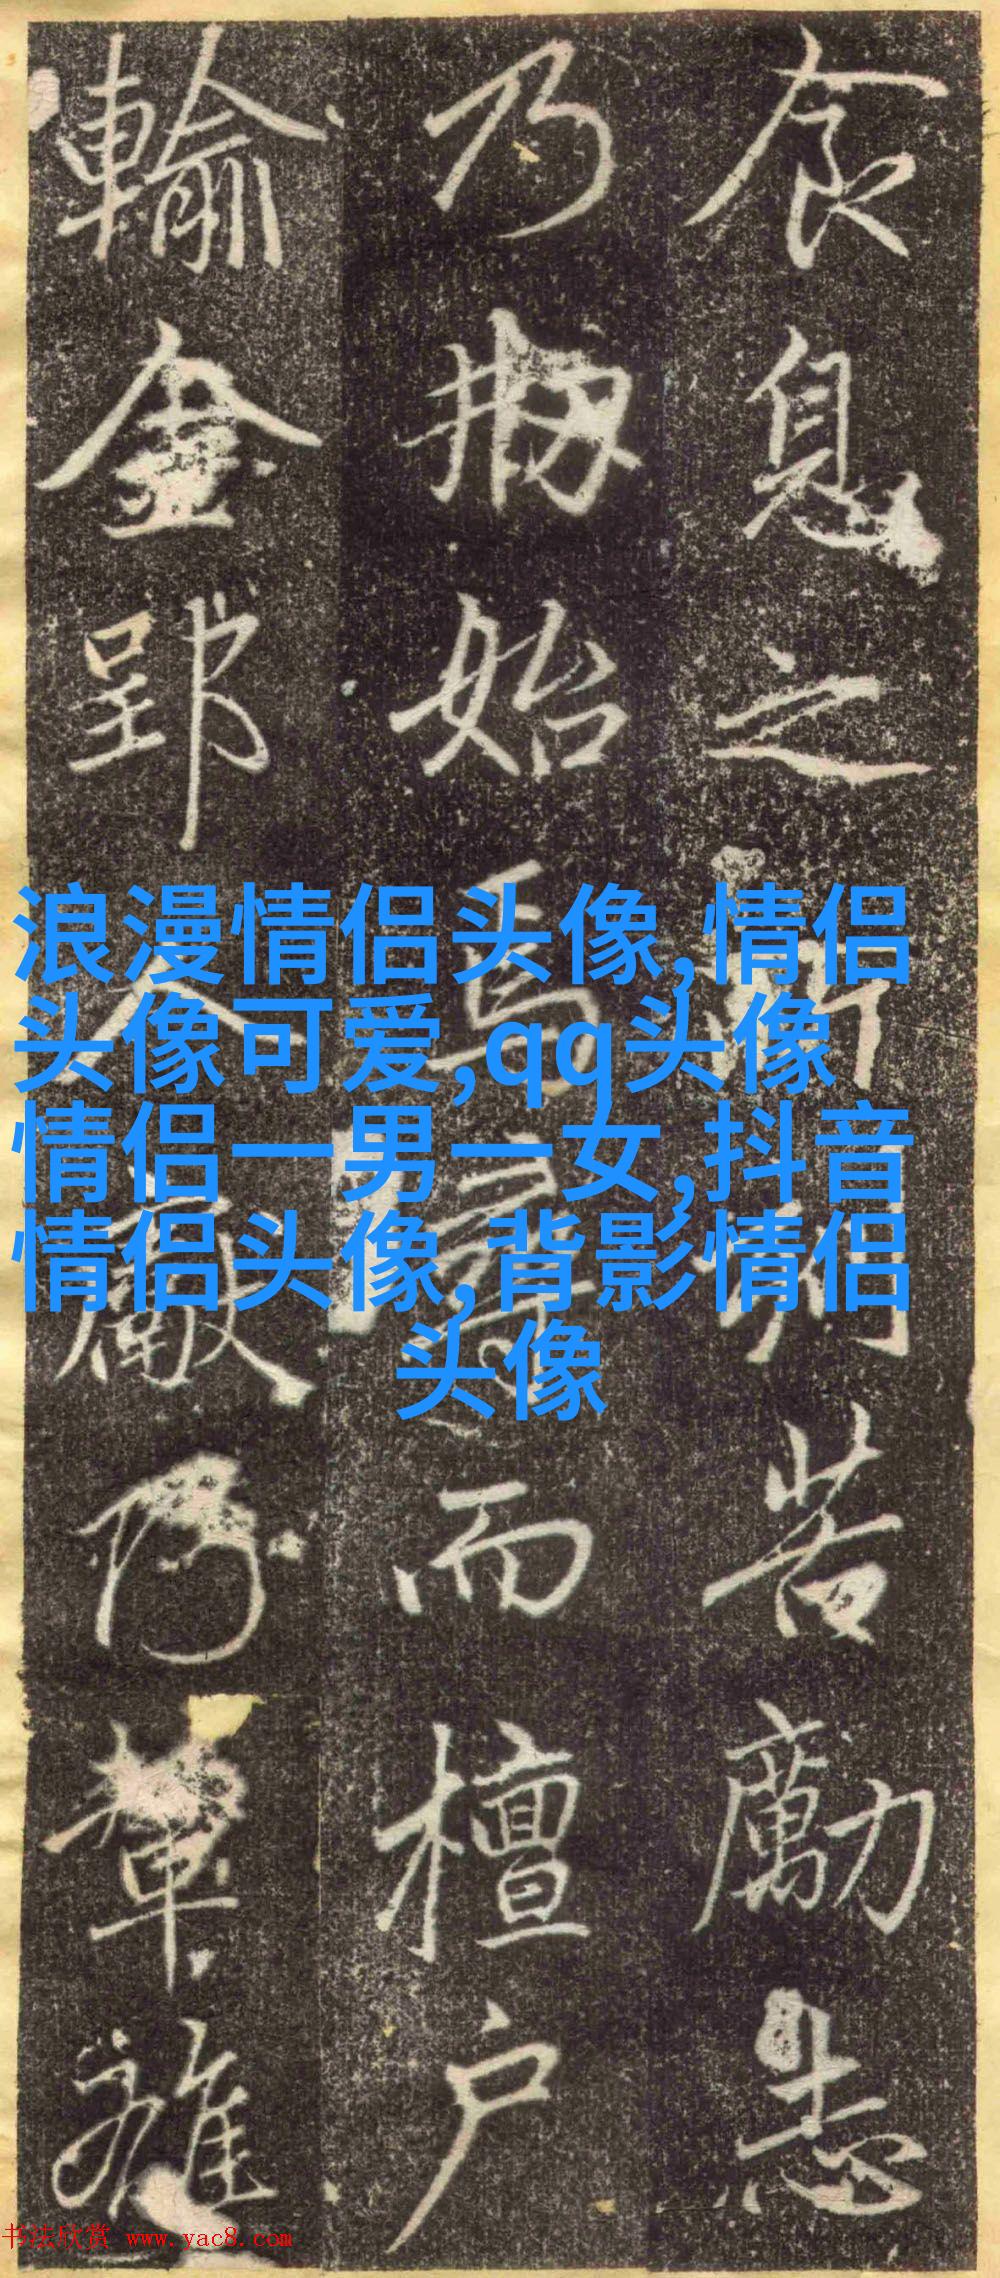 食息之所苦勵志
乃始焉而檀戶
輸金郢人輦雖
浪漫情侣头像,情侣
头像可爱,qq头像
情侣一男一女,抖音
情侣头像,背影情侣
头像
书法欣赏 www.yac8.com